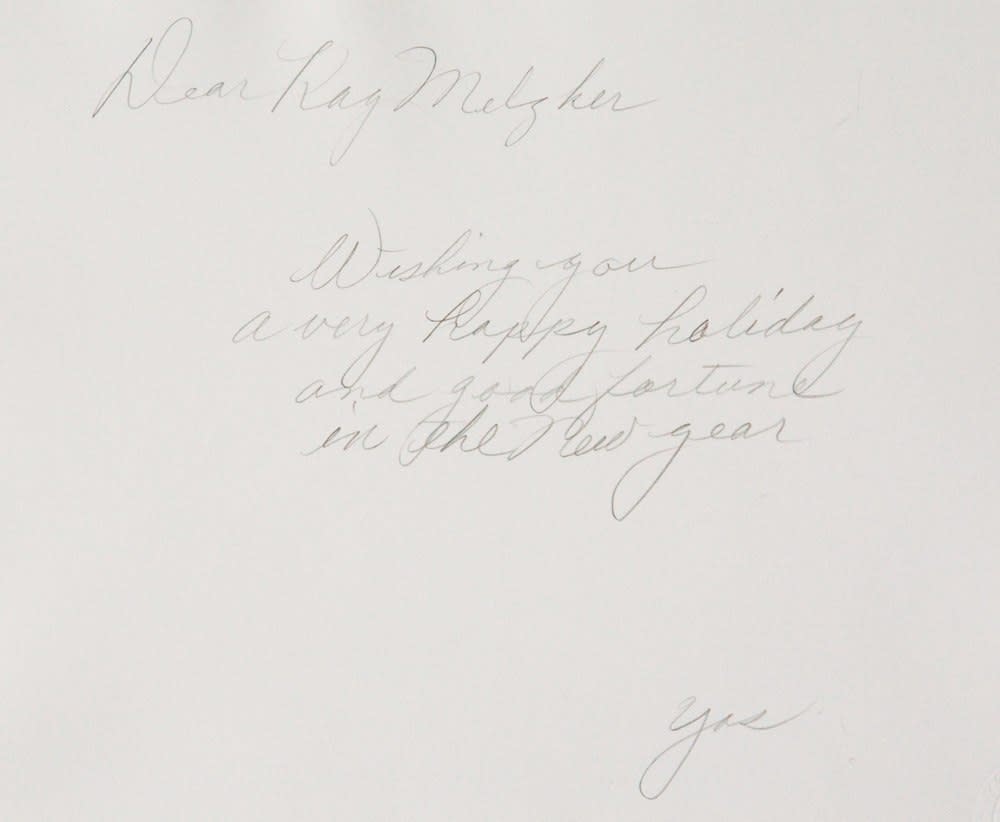 Dear Ray Metzker
Wishing you
a very happy holiday
and good fortune
in the New year
Yas